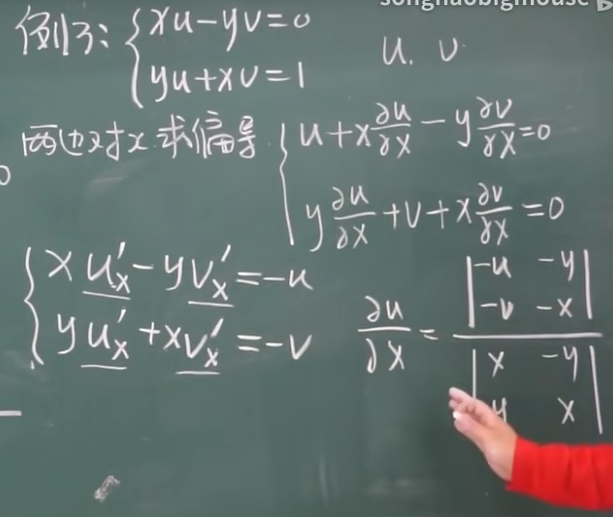 songhaobigmouse
例子: { xu-yv=0
yu+xv=1
u. v
两边对x求偏导 { u+x ∂u/∂x - y ∂v/∂x =0
y ∂u/∂x + v + x ∂v/∂x =0
{ x u'x - y v'x = -u
y u'x + x v'x = -v
∂u/∂x = | -u -y |
| -v -x |
| x -y |
| y x |